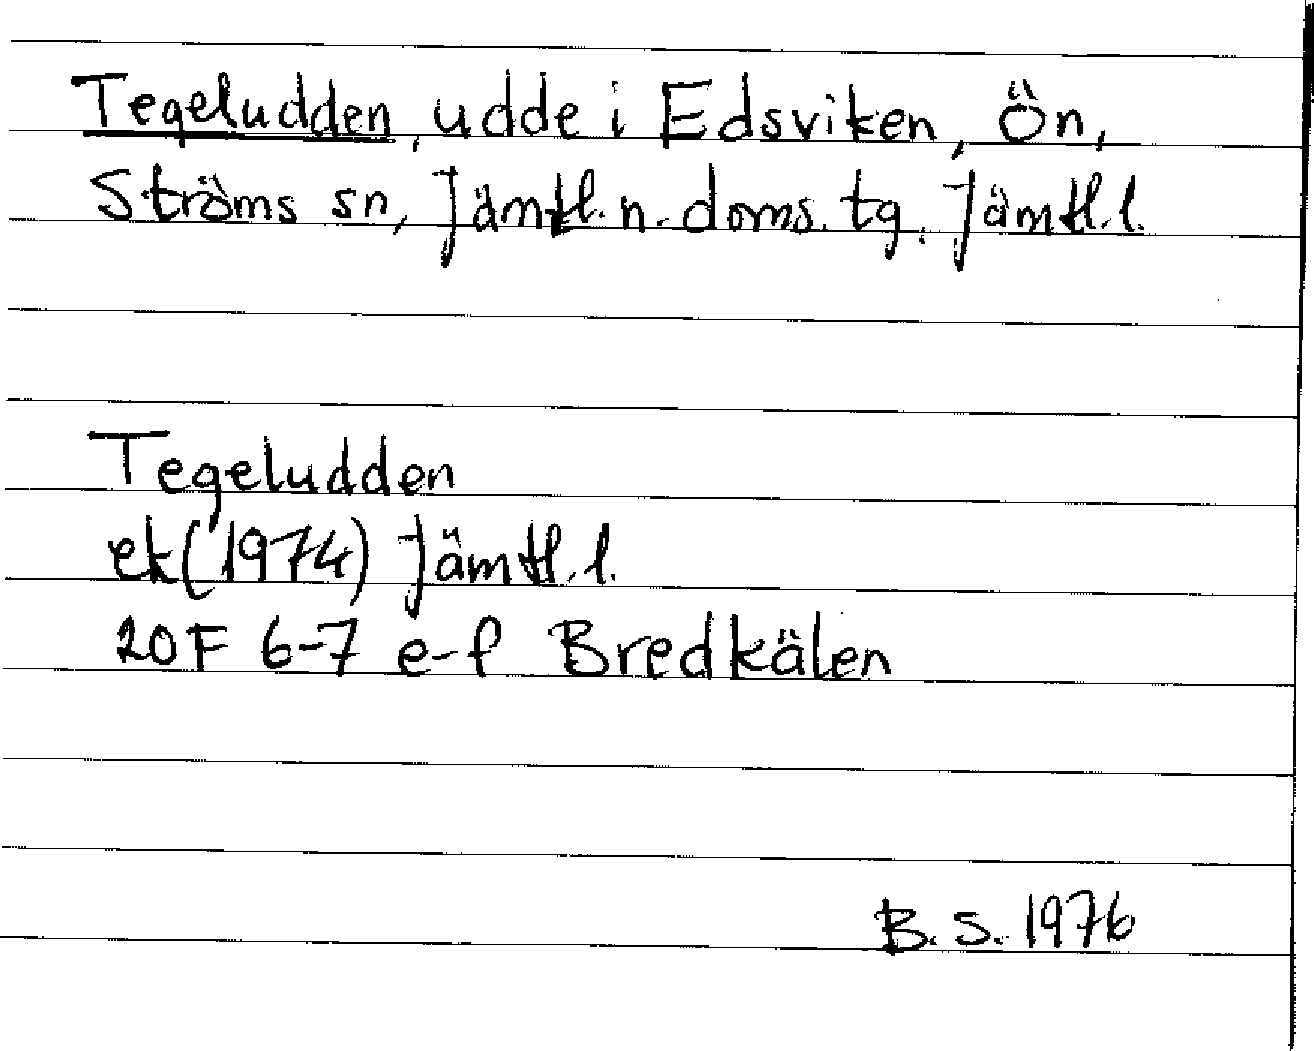 Tegeludden, udde i Edsviken, Ön,
Ströms sn, Jämtl. n. doms. tg. Jämtl. l.
Tegeludden
ek (1974) Jämtl. l.
20F 6-7 e-f Bredkälen
B. S. 1976